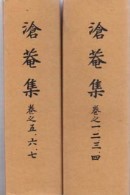 滄菴集
卷之一二三、四
滄菴集
卷之五、六、七